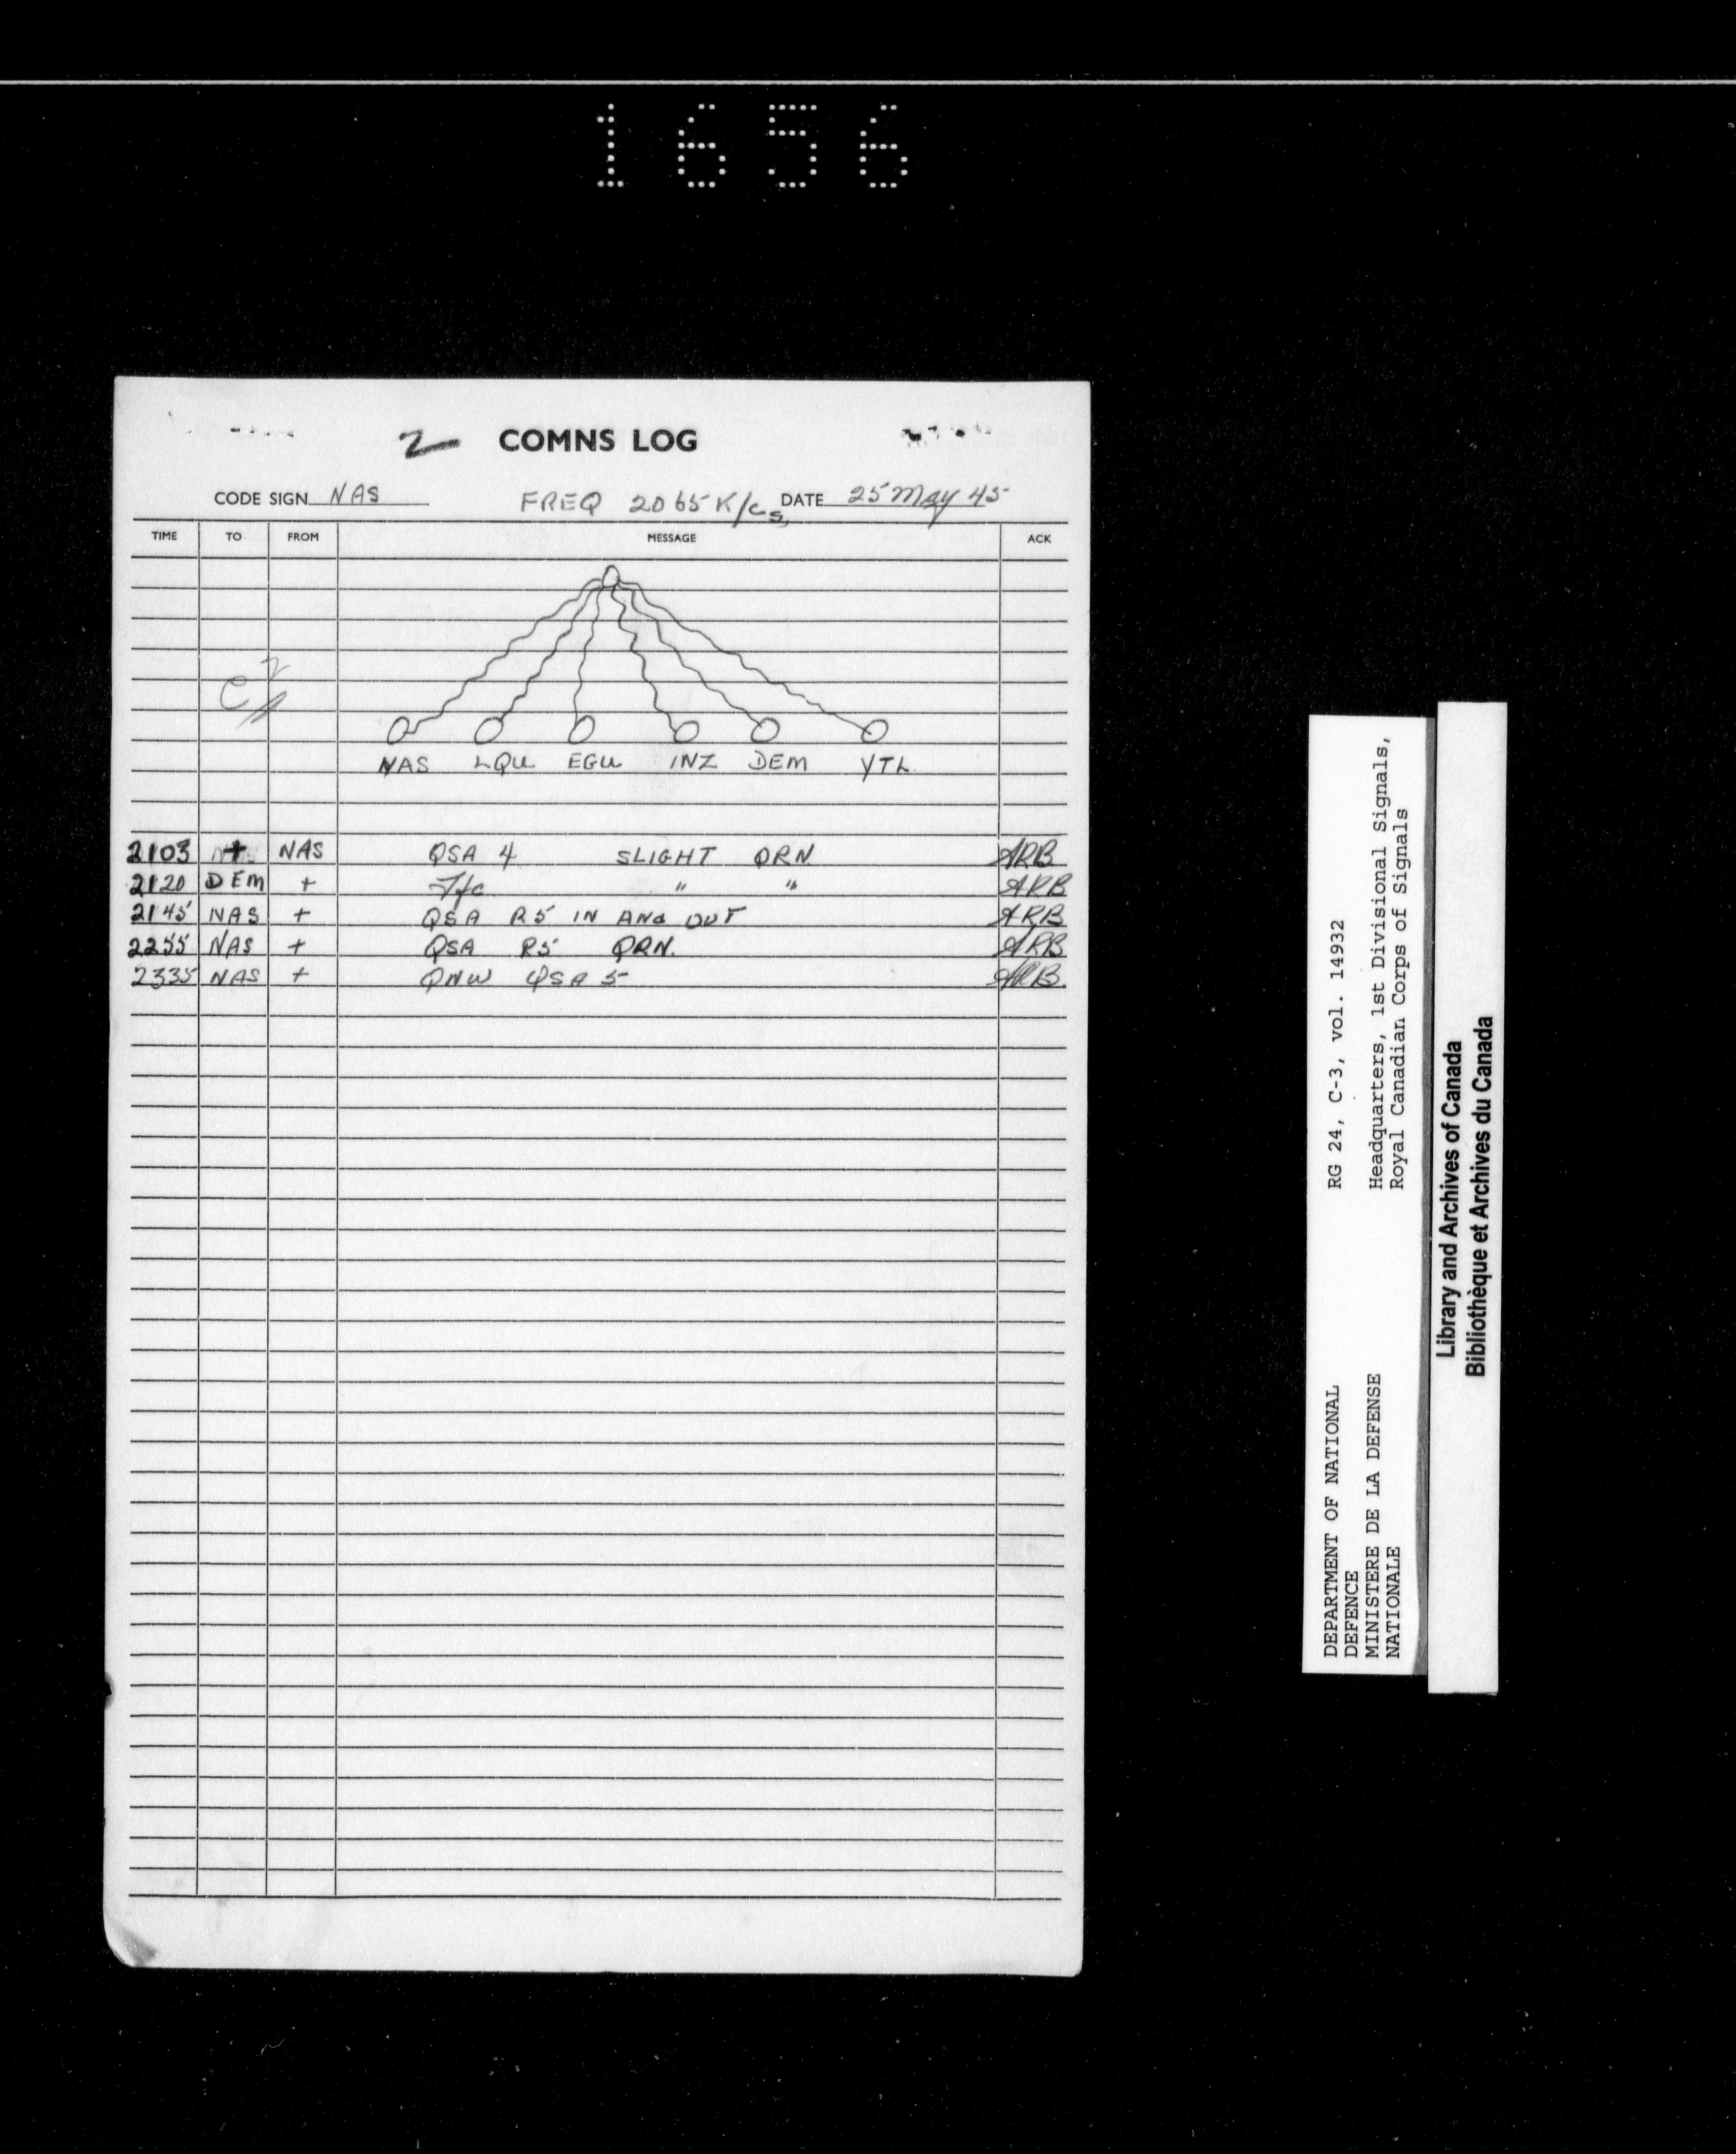 1656
2 COMNS LOG
CODE SIGN NAS FREQ 2065 K/cs DATE 25 May 45
TIME TO FROM MESSAGE ACK
NAS LQU EGU INZ DEM YTL
2103 + NAS QSA 4 SLIGHT QRN ARB
2120 DEM + " " ARB
2145 NAS + QSA R5 IN AND OUT ARB
2255 NAS + QSA R5 QRN. ARB
2335 NAS + QNW QSA 5 ARB.
DEPARTMENT OF NATIONAL
DEFENCE
MINISTERE DE LA DEFENSE
NATIONALE
RG 24, C-3, vol. 14932
Headquarters, 1st Divisional Signals,
Royal Canadian Corps of Signals
Library and Archives of Canada
Bibliothèque et Archives du Canada